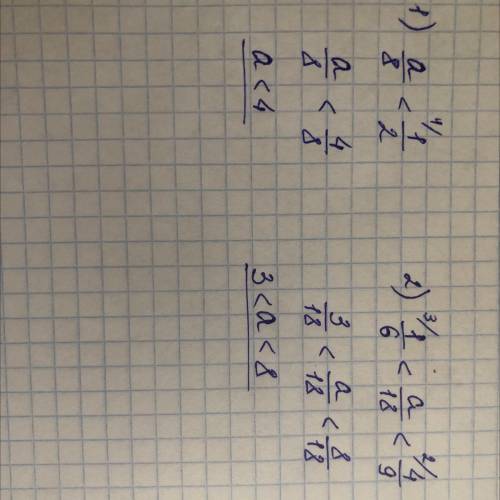 1) a/8 < ⁴/ 1/2
a/8 < 4/8
a < 4
2) ³/ 1/6 < a/18 < ²/ 4/9
3/18 < a/18 < 8/18
3 < a < 8